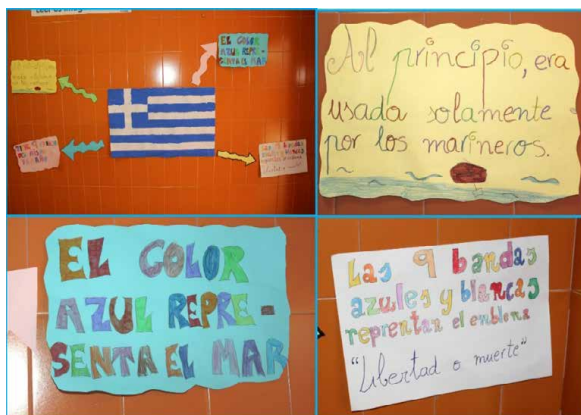 EL COLOR
AZUL REPRE-
SENTA EL MAR
Al principio, era
usada solamente
por los marineros.
EL COLOR
AZUL REPRE-
SENTA EL MAR
Las 9 bandas
azules y blancas
reprentan el emblema
"Libertad o muerte"